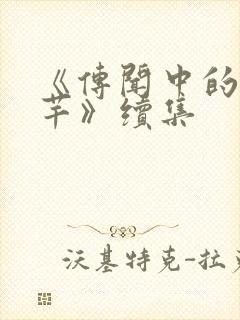 《傳聞中的
芊》續集
沃基特克-拉